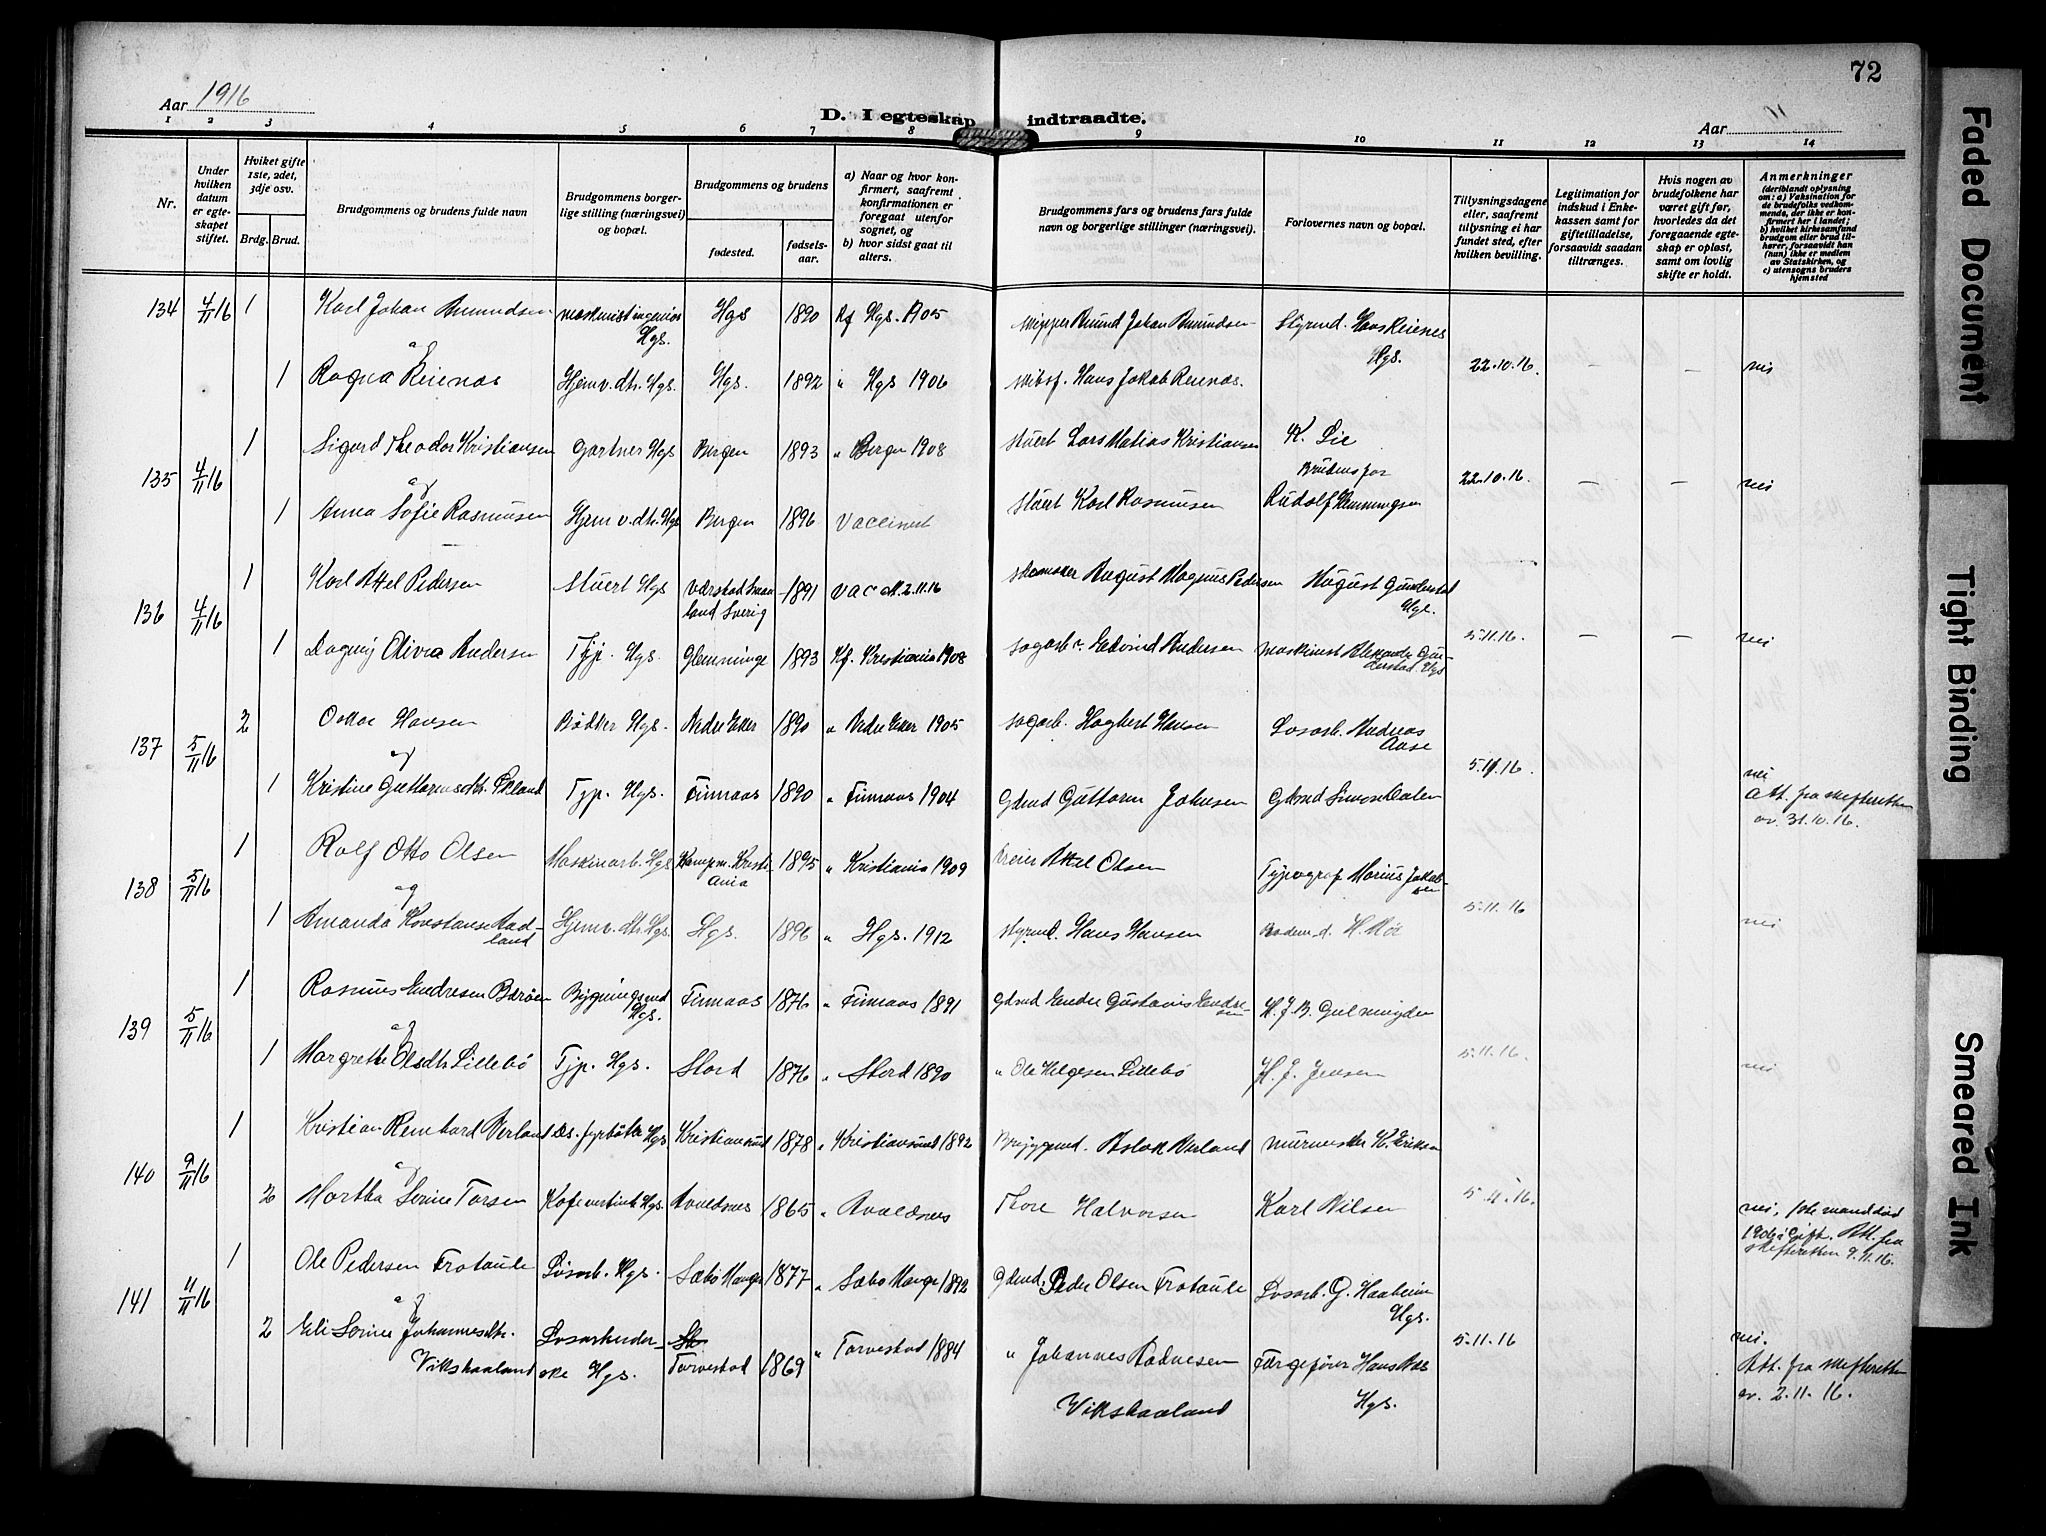 72
Aar 1916
D. I egteskap indtraadte.
Aar
1 2 3 4 5 6 7 8 9 10 11 12 13 14
Nr.
Under hvilken datum er egteskapet stiftet.
Hvilket gifte 1ste, 2det, 3dje osv.
Brdg. Brud.
Brudgommens og brudens fulde navn
Brudgommens borgerlige stilling (næringsvei) og bopæl.
Brudgommens og brudens
fødested.
fødselsaar.
a) Naar og hvor konfirmert, saafremt konfirmationen er foregaat utenfor sognet, og
b) hvor sidst gaat til alters.
Brudgommens fars og brudens fars fulde navn og borgerlige stillinger (næringsvei).
Forlovernes navn og bopæl.
Tillysningsdagene eller, saafremt tillysning ei har fundet sted, efter hvilken bevilling.
Legitimation for indskud i Enkekassen samt for giftetilladelse, forsaavidt saadan tiltrænges.
Hvis nogen av brudefolkene har været gift før, hvorledes da det foregaaende egteskap er opløst, samt om lovlig skifte er holdt.
Anmerkninger
(deriblandt oplysning om: a) Vaksination for de brudefolks vedkommende, der ikke er konfirmert her i landet; b) hvilket kirkesamfund brudgom eller brud tilhører, forsaavidt han (hun) ikke er medlem av Statskirken, og c) utensogns bruders hjemsted
134 4/11 16 1 Karl Johan Amundsen maskinistingeniør Hgs. Hgs 1890 Kf Hgs. 1905 skipper Amund Johan Amundsen Styrmd. Hans Reienes Hgs.
og
1 Ragna Reienæs Hjemv. dtr. Hgs. Hgs. 1892 " Hgs 1906 skibsf. Hans Jakob Reienæs. 22.10.16. — — nei
135 4/11 16 1 Sigurd Theodor Kristiansen Gartner Hgs Bergen 1893 " Bergen 1908 stuert Lars Matias Kristiansen K. Lie
og
Brudens far
22.10.16. — — nei
1 Anna Sofie Rasmusen Hjemv. dtr. Hgs Bergen 1896 Vaccineret stuert Karl Rasmusen Rudolf Hemmingsen
136 4/11 16 1 Karl Axel Pedersen Stuert Hgs Værstad Smaaland Sverig 1891 vac att. 2.11.16 August Magnus Pedersen August Gunderstad Hgs.
1 Dagny Olivia Andersen Tjp. Hgs. Glemminge 1893 Kf. Kristiania 1908 sagarb. Edvind Andersen maskinist Alexander Gunderstad. Hgs 5.11.16. — — nei
137 5/11 16 2 Oskar Hansen Bødker Hgs. Nedre Eker 1890 " Nedre Eker 1905 sagarb. Hagbert Hansen Løsarb. Andreas Aase
og
5.11.16. nei
1 Kristine Guttormsdtr. Økland Tjp. Hgs. Finnaas 1890 " Finnaas 1904 Gdmd Guttorm Johnsen Gdmd Simon Dalen
Att. fra skifteretten av. 31.10.16.
138 5/11 16 1 Rolf Otto Olsen Maskinarb. Hgs Kampen. Kristiania 1895 " Kristiania 1909 Dreier Axel Olsen Typograf Marius Jakobsen
og
1 Amanda Konstanse Aadland Hjemv. dtr. Hgs. Hgs. 1896 " Hgs. 1912 styrmd. Hans Hansen H. Moe 5.11.16 nei
139 5/11 16 1 Rasmus Endresen Bærøen Bygningsmd Hgs. Finnaas 1876 " Finnaas 1891 Gdmd Endre Gustavus Endresen H. J. B.
og
1 Margrethe Olsdtr Lillebø Tjp. Hgs. Stord 1876 " Stord 1890 " Ole Helgesen Lillebø H. J. Jensen 5.11.16. nei
140 9/11 16 1 Kristian Reinhard Verland Ds. fyrbøter Hgs Kristiansund 1878 " Kristiansund 1892 Bryggemd. Aslak Verland murmester K. Eriksen
og
2 Martha Serine Torsen Kafevertinde Hgs. Avaldsnes 1865 " Avaldsnes Tore Halvorsen Karl Nilsen 5.11.16.
nei, første mand død 1906 i Gift. Att. fra skifteretten 9.11.16.
141 11/11 16 1 Ole Pedersen Frotaule Løsarb. Hgs. Sæbø Hauge 1877 " Sæbø Hauge 1892 Gdmd. Peder Olsen Frotaule Løsarb. G. Haaheim Hgs.
og
2 Eli Serine Johannesdtr. Vikshaaland Løsarbeiderske Hgs. Torvestad 1869 " Torvestad 1884 " Johannes Rasmusen Vikshaaland Færgefører Hans Aas Hgs. 5.11.16
nei.
Att. fra skifteretten av. 2.11.16.
Faded Document
Tight Binding
Smeared Ink